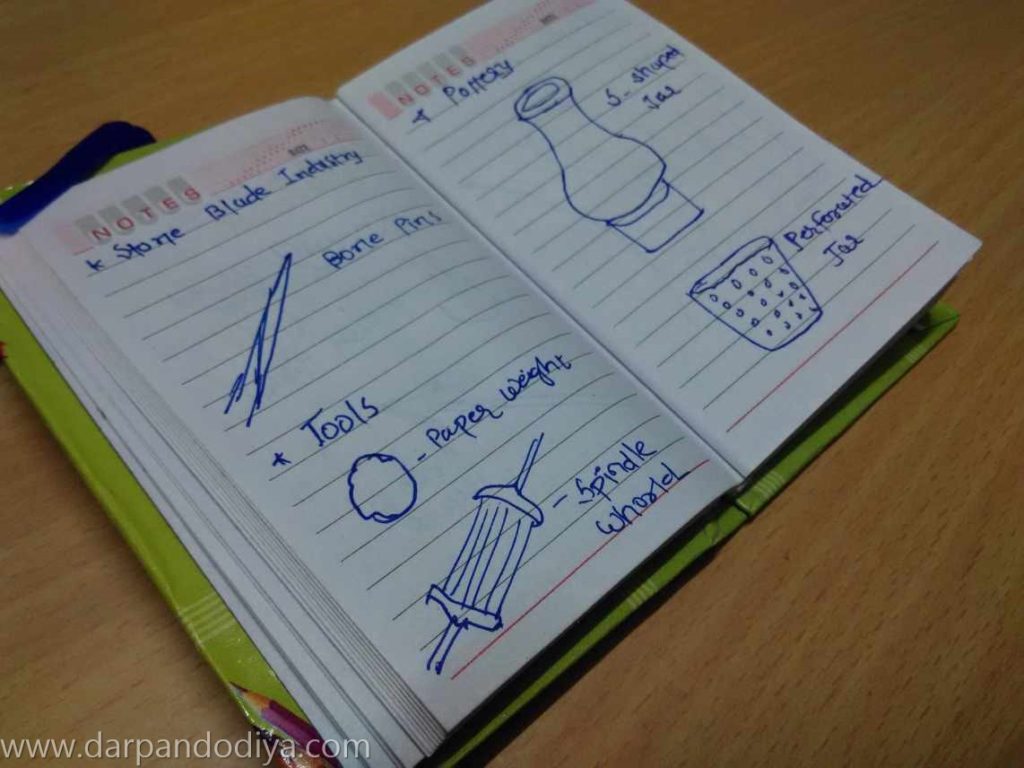 NOTES
* Stone Blade Industry
Bone Pins
* Tools
- Paper weight
- Spindle
Whorld
NOTES
* Pottery
S - shaped
Jar
Perforated
Jar
www.darpandodiya.com